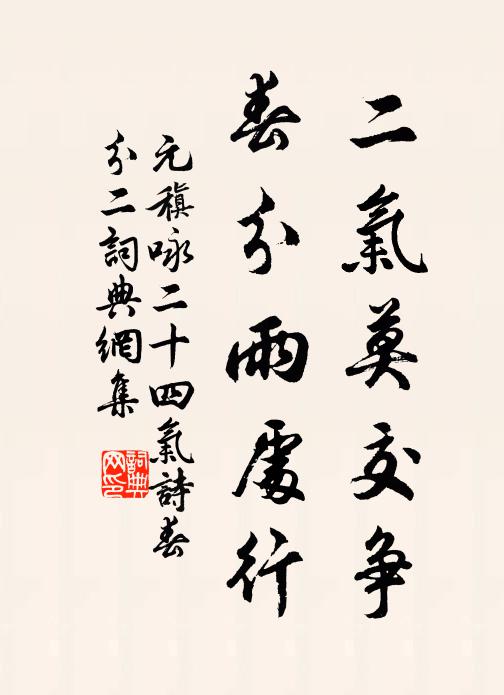 二氣莫交争
春分雨處行
元稹咏二十四氣詩春
分二詞典網集
詞典
网印